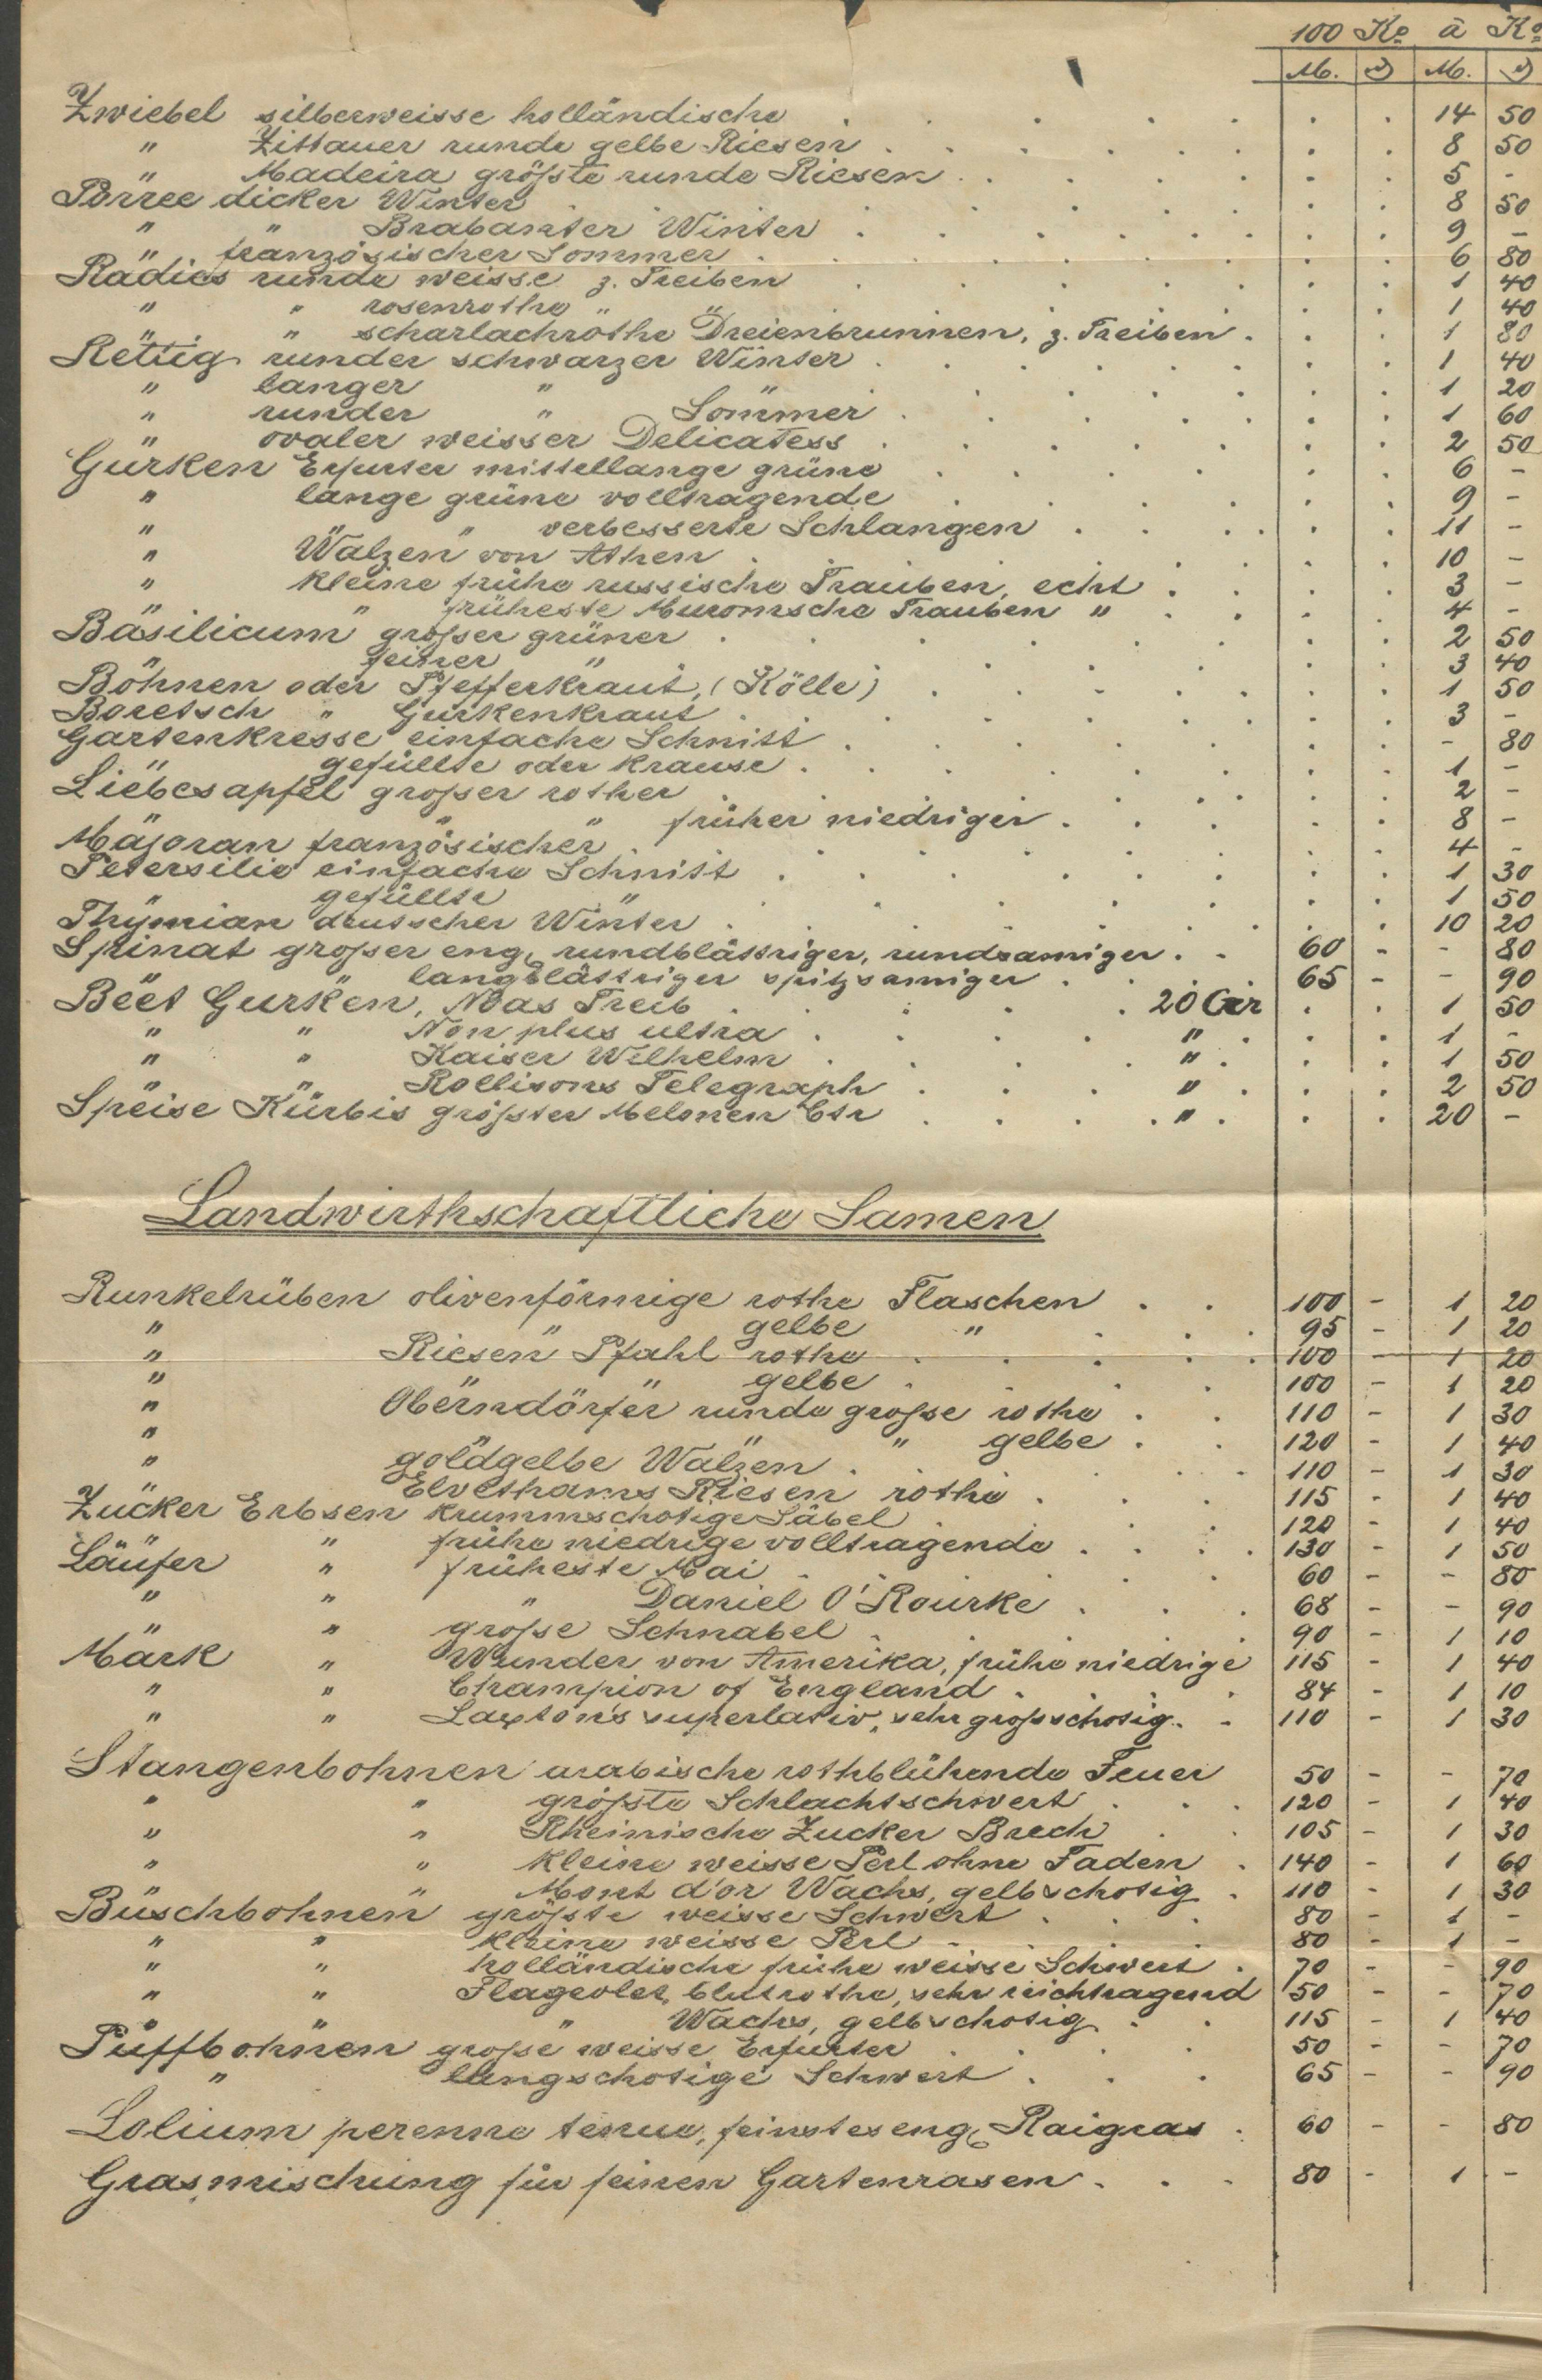 100 Ko à Ko
M. ₰ M. ₰
Zwiebel silberweisse holländische . . . . . . . 14 50
" Zittauer runde gelbe Riesen . . . . . . . 8 50
" Madeira größte runde Riesen . . . . . . . 5 -
Porree dicker Winter . . . . . . . 8 50
" " Brabanter Winter . . . . . . . 9 -
" französischer Sommer . . . . . . . 6 80
Radies runde weisse z. Treiben . . . . . . . 1 40
" " rosenrothe " " . . . . . . . 1 40
" " scharlachrothe Dreienbrunnen, z. Treiben . . . 1 80
Rettig runder schwarzer Winter . . . . . . . 1 40
" langer " " . . . . . . . 1 20
" runder " Sommer . . . . . . . 1 60
" ovaler weisser Delicatess . . . . . . . 2 50
Gurken Erfurter mittellange grüne . . . . . . . 6 -
" lange grüne volltragende . . . . . . . 9 -
" " " verbesserte Schlangen . . . . . . 11 -
" Walzen von Athen . . . . . . . 10 -
" kleine frühe russische Trauben, echt . . . . . . 3 -
" " früheste Muromsche Trauben " . . . . . 4 -
Basilicum großer grüner . . . . . . . 2 50
" feiner " . . . . . . . 3 40
Bohnen oder Pfefferkraut, (Kölle) . . . . . . . 1 50
Boretsch " Gurkenkraut . . . . . . . 3 -
Gartenkresse einfache Schnitt . . . . . . . - 80
" gefüllte oder krause . . . . . . . 1 -
Liebesapfel großer rother . . . . . . . 2 -
" " " früher niedriger . . . . . . 8 -
Majoran französischer . . . . . . . 4 -
Petersilie einfache Schnitt . . . . . . . 1 30
" gefüllte " . . . . . . . 1 50
Thymian deutscher Winter . . . . . . . 10 20
Spinat großer eng. rundblättriger, rundsamiger . . 60 - - 80
" " langblättriger spitzsamiger . . . 65 - - 90
Beet Gurken, Noas Treib . . . . 20 Gr . . 1 50
" " Non plus ultra . . . . . " . . . 1 -
" " Kaiser Wilhelm . . . . . " . . . 1 50
" " Rollisons Telegraph . . . . " . . . 2 50
Speise Kürbis größter Melonen Ctr . . . . " . . . 20 -
Landwirthschaftliche Samen
Runkelrüben olivenförmige rothe Flaschen . . 100 - 1 20
" " gelbe " . . . 95 - 1 20
" Riesen Pfahl rothe . . . . . 100 - 1 20
" " " gelbe . . . . 100 - 1 20
" Oberndörfer runde große rothe . . 110 - 1 30
" " " " gelbe . . 120 - 1 40
" goldgelbe Walzen . . . . . 110 - 1 30
" Elvethams Riesen rothe . . . 115 - 1 40
Zucker Erbsen krummschotige Säbel . . . . 120 - 1 40
" " frühe niedrige volltragende . . . . 130 - 1 50
Läufer " früheste Mai . . . . 60 - - 80
" " " Daniel O'Rourke . . . 68 - - 90
" " große Schnabel . . . . . 90 - 1 10
Mark " Wunder von Amerika, frühe niedrige 115 - 1 40
" " Champion of England . . . . 84 - 1 10
" " Laxton's superlativ, sehr großschotig . . 110 - 1 30
Stangenbohnen arabische rothblühende Feuer 50 - - 70
" " größte Schlachtschwert . . . 120 - 1 40
" " Rheinische Zucker Brech . . 105 - 1 30
" " kleine weisse Perl ohne Faden . 140 - 1 60
" " Mont d'or Wachs, gelbschotig . 110 - 1 30
Buschbohnen größte weisse Schwert . . . 80 - 1 -
" " kleine weisse Perl . . . . 80 - 1 -
" " holländische frühe weisse Schwert . 70 - - 90
" " Flageolet, blutrothe, sehr reichtragend 50 - - 70
" " " Wachs, gelbschotig . . 115 - 1 40
Puffbohnen große weisse Erfurter . . . . 50 - - 70
" langschotige Schwert . . . 65 - - 90
Lolium perenne tenue, feinstes eng. Raigras . 60 - - 80
Grasmischung für feinen Gartenrasen . . . 80 - 1 -